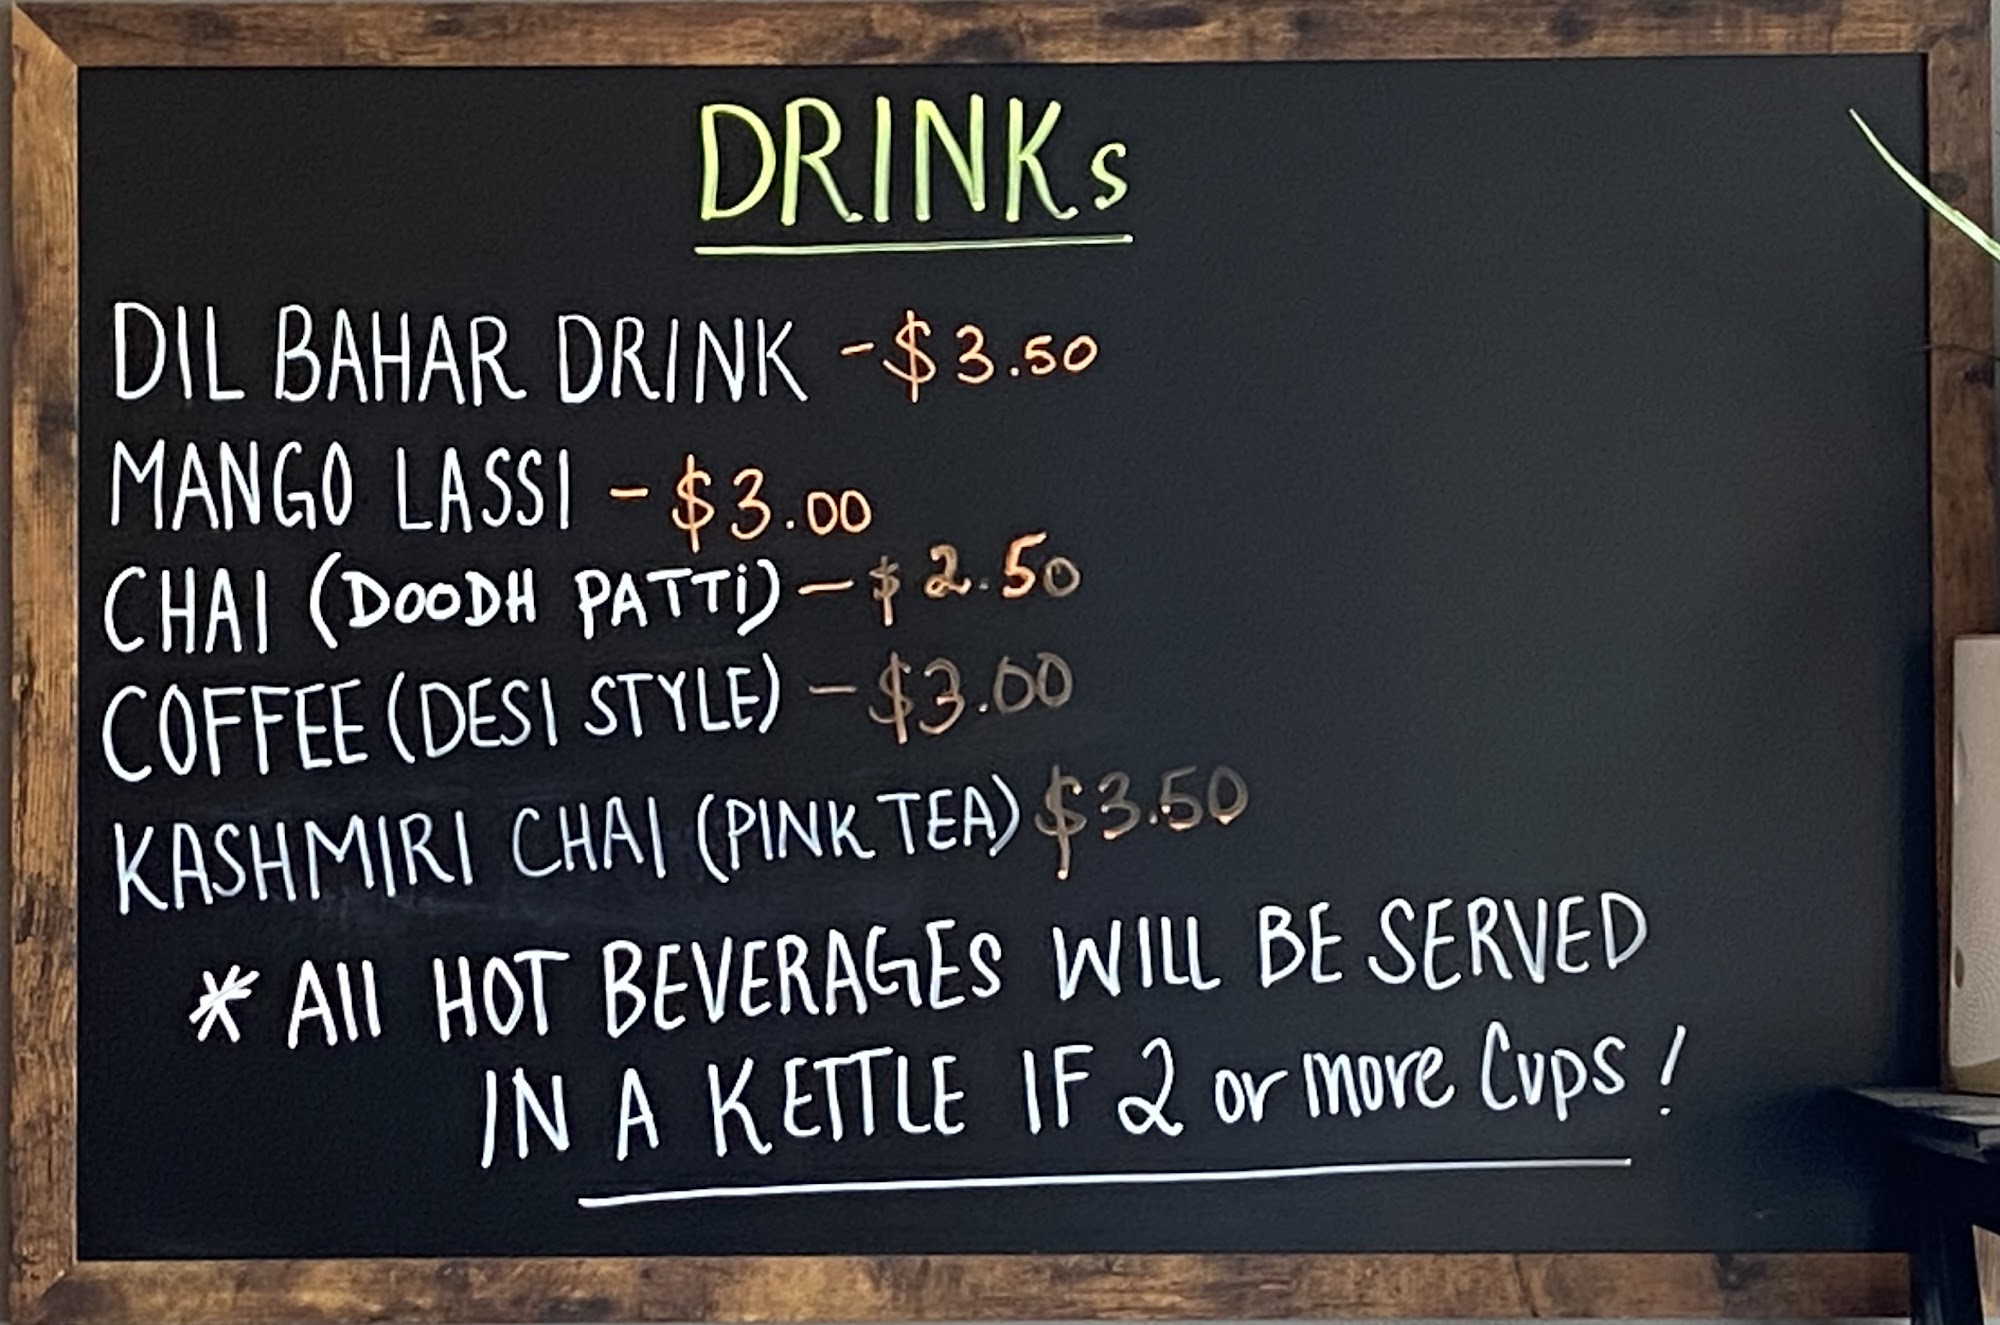 DRINKs
DIL BAHAR DRINK - $3.50
MANGO LASSI - $3.00
CHAI (DOODH PATTi) - $2.50
COFFEE (DESI STYLE) - $3.00
KASHMIRI CHAI (PINK TEA) $3.50
* All HOT BEVERAGES WILL BE SERVED
IN A KETTLE IF 2 or more Cups!